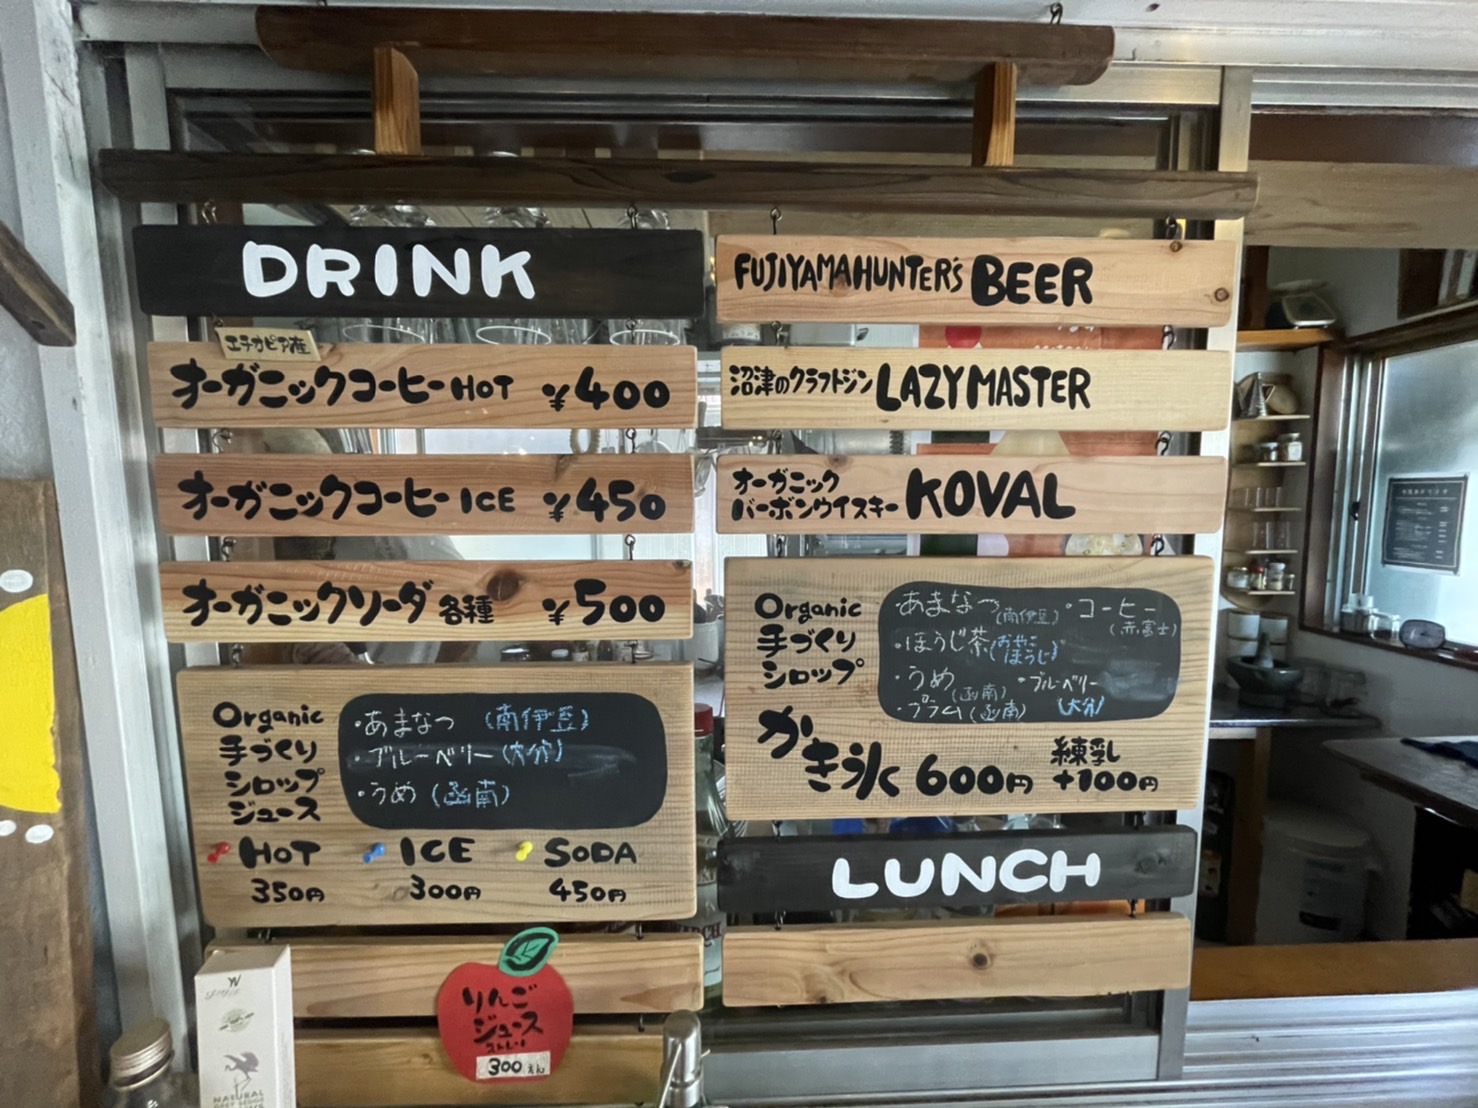 DRINK
エチオピア産
オーガニックコーヒーHOT ¥400
オーガニックコーヒーICE ¥450
オーガニックソーダ各種 ¥500
Organic
手づくり
シロップ
ジュース
・あまなつ (南伊豆)
・ブルーベリー(大分)
・うめ (函南)
HOT ICE SODA
350円 300円 450円
りんご
ジュース
ストレート
300えん
NATURAL
FUJIYAMAHUNTER'S BEER
沼津のクラフトジン LAZY MASTER
オーガニック
バーボンウイスキー KOVAL
Organic
手づくり
シロップ
・あまなつ(南伊豆) ・コーヒー
(赤富士)
・ほうじ茶(おやこ
ほうじ)
・うめ(函南) ・ブルーベリー
・プラム(函南) (大分)
かき氷 600円 練乳
+100円
LUNCH